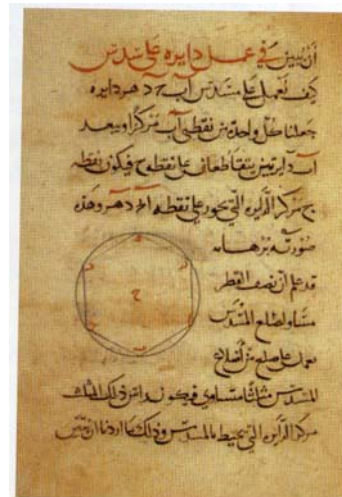 أن نبين في عمل دايره على مسدس
كيف نعمل على مسدس اب ج د ه ر دايره
جعلنا كل واحدة من نقطتي اب مركزا وببعد
اب دايرتين يتقاطعان على نقطة ح فيكون نقطه
ح مركز الدايره التي يجوز على نقطه اب ج د ه ر وهذه
صورته برهانه
قد علم ان نصف القطر
مساو لضلع المسدس
نعمل على ضلع من اضلاع
المسدس مثلثا متساوي فيكون راس ذلك المثلث
مركز الدايره التي تحيط بالمسدس وذلك ما اردنا ان نبين
ح